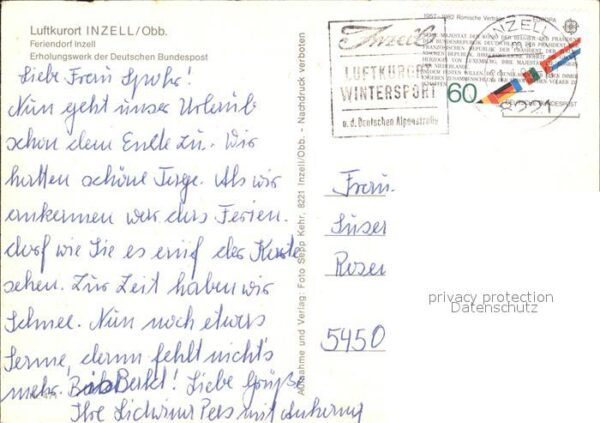 Luftkurort INZELL/Obb.
Feriendorf Inzell
Erholungswerk der Deutschen Bundespost
Liebe Frau Spohr!
Nun geht unser Urlaub
schon dem Ende zu. Wir
hatten schöne Tage. Als wir
ankammen war das Ferien.
dorf wie Sie es auf der Karte
sehen. Zur Zeit haben wir
Schnee. Nun noch etwas
Sonne, dann fehlt nicht's
mehr. Bis Bald! Liebe Grüße
Ihre
mit Anhang
Aufnahme und Verlag: Foto Sepp Kehr, 8221 Inzell/Obb. - Nachdruck verboten
Inzell
LUFTKURORT
WINTERSPORT
a. d. Deutschen Alpenstraße
1957-1982 Römische Verträge EUROPA
60
DEUTSCHE BUNDESPOST
INZELL
8221
Frau
5450
privacy protection
Datenschutz